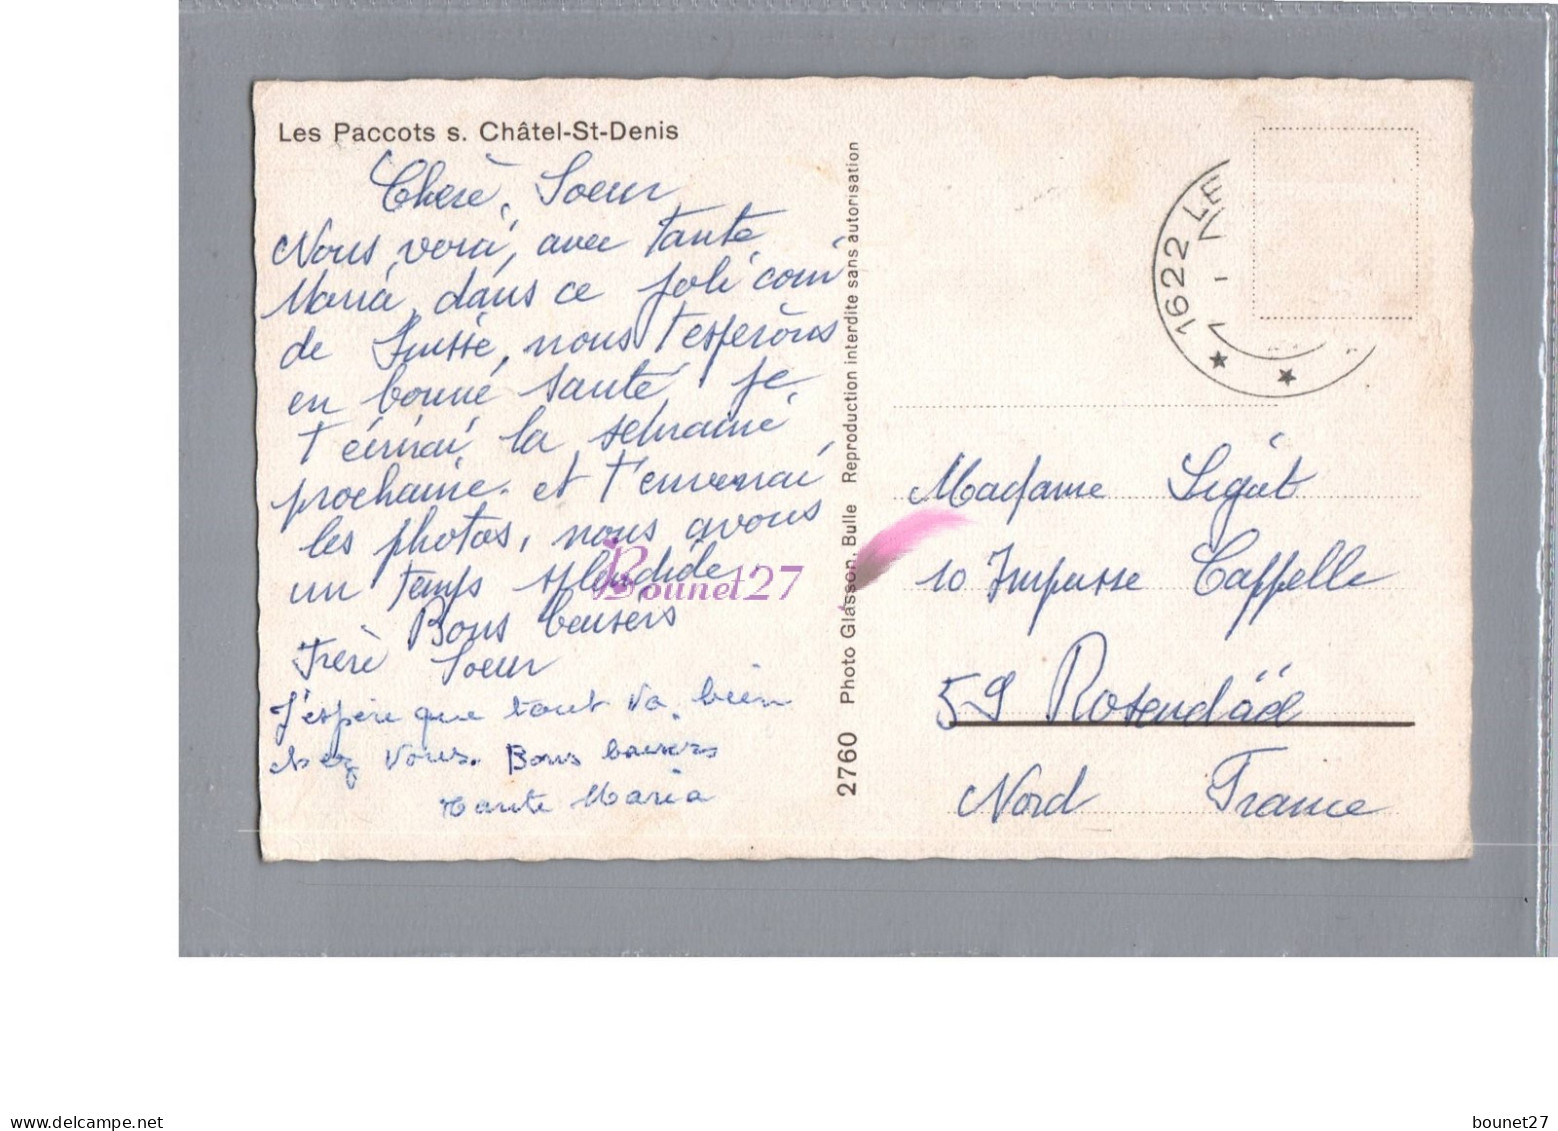 Les Paccots s. Châtel-St-Denis
Cherè, Soeur
Nous voici, avec tante
Maria, dans ce joli coin
de Suisse, nous t'esperons
en bonne santé je
t'écirai la semainé
prochaine. et t'enverrai
les photos, nous avons
un temps splendide
Bons baisers
Frère Soeur
J'espère que tout va bien
chez vous. Bons baisers
tante Maria
2760 Photo Glasson, Bulle Reproduction interdite sans autorisation
1622 LE
Madame
10 Impasse Cappelle
59 Rosendäel
Nord France
Bounet27
www.delcampe.net
bounet27